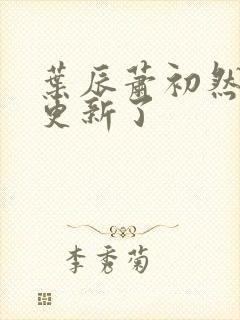 葉辰蕭初然
更新了
李秀菊